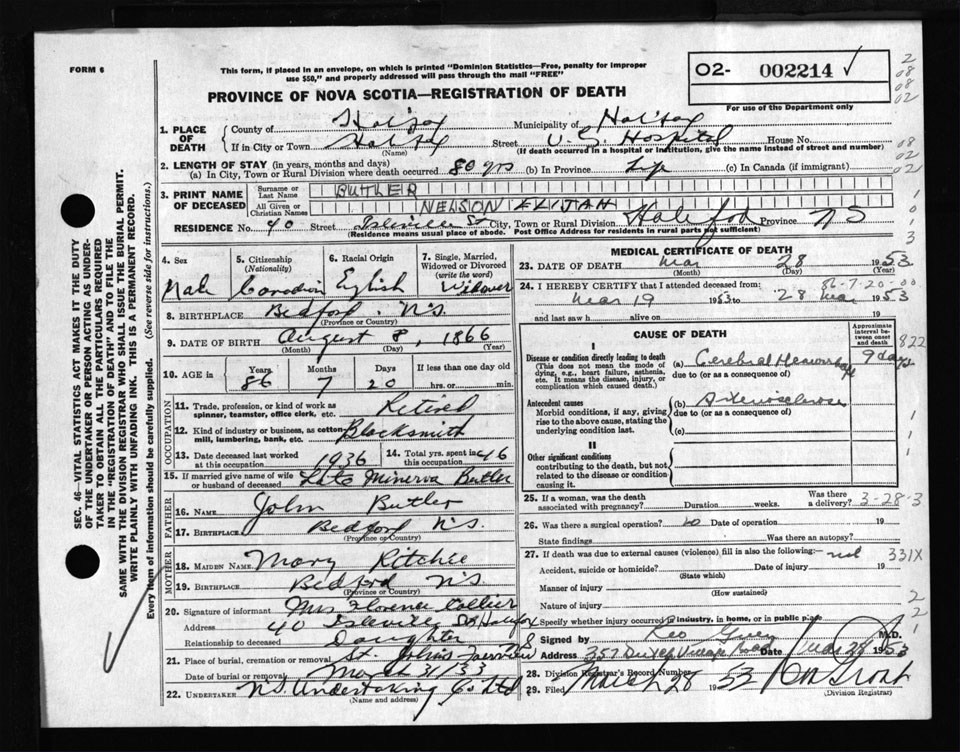 FORM 6
This form, if placed in an envelope, on which is printed "Dominion Statistics—Free, penalty for improper
use $50," and properly addressed will pass through the mail "FREE"
O2- 002214
For use of the Department only
PROVINCE OF NOVA SCOTIA—REGISTRATION OF DEATH
1. PLACE OF DEATH
County of Halifax Municipality of Halifax
If in City or Town Halifax Street V. G. Hospital House No.
(Name) (If death occurred in a hospital or institution, give the name instead of street and number)
2. LENGTH OF STAY (in years, months and days)
(a) In City, Town or Rural Division where death occurred 80 yrs (b) In Province Life (c) In Canada (if immigrant)
3. PRINT NAME OF DECEASED
Surname or Last Name BUTLER
All Given or Christian Names NELSON ELIJAH
RESIDENCE No. 40 Street City, Town or Rural Division Halifax Province NS
(Residence means usual place of abode. Post Office Address for residents in rural parts not sufficient)
4. Sex
Male
5. Citizenship
(Nationality)
Canadian
6. Racial Origin
English
7. Single, Married,
Widowed or Divorced
(write the word)
Widower
8. BIRTHPLACE Bedford N.S.
(Province or Country)
9. DATE OF BIRTH August 8, 1866
(Month) (Day) (Year)
10. AGE in Years Months Days If less than one day
86 7 20 hrs. or min.
OCCUPATION
11. Trade, profession, or kind of work as
spinner, teamster, office clerk, etc. Retired
12. Kind of industry or business, as cotton-
mill, lumbering, bank, etc. Blacksmith
13. Date deceased last worked
at this occupation 1936
14. Total yrs. spent in
this occupation 46
15. If married give name of wife
or husband of deceased Late Minerva Butler
FATHER
16. Name John Butler
17. Birthplace Bedford N.S.
(Province or Country)
MOTHER
18. MAIDEN NAME Mary Ritchie
19. BIRTHPLACE Bedford N.S.
(Province or Country)
20. Signature of informant Mrs Florence Collier
Address 40 Isleville St Halifax
Relationship to deceased Daughter
21. Place of burial, cremation or removal St. Johns Fairview
Date of burial or removal March 31/53
22. UNDERTAKER NS Undertaking Co Ltd
(Name and address)
MEDICAL CERTIFICATE OF DEATH
23. DATE OF DEATH Mar 28 1953
(Month) (Day) (Year)
86-7-20-00
24. I HEREBY CERTIFY that I attended deceased from:
Mar 19 1953 to 28 Mar 1953
and last saw h alive on
CAUSE OF DEATH
Approximate
interval between
onset and death
I
Disease or condition directly leading to death
(This does not mean the mode of
dying, e.g., heart failure, asthenia,
etc. It means the disease, injury, or
complication which caused death.)
(a) Cerebral Hemorrhage 9 days
due to (or as a consequence of)
822
Antecedent causes
Morbid conditions, if any, giving
rise to the above cause, stating the
underlying condition last.
(b) Arteriosclerosis
due to (or as a consequence of)
(c)
II
Other significant conditions
contributing to the death, but not
related to the disease or condition
causing it.
25. If a woman, was the death
associated with pregnancy? Duration weeks. Was there
a delivery?
3-28-3
26. Was there a surgical operation? no Date of operation 19
State findings Was there an autopsy?
27. If death was due to external causes (violence) fill in also the following:—
331X
Accident, suicide or homicide? Date of injury 19
(State which)
Manner of injury
(How sustained)
Nature of injury
Specify whether injury occurred in industry, in home, or in public place
Signed by M.D.
Address 357 Dutch Village Road Date Mar 28 1953
28. Division Registrar's Record Number
29. Filed March 28 1953
(Division Registrar)
SEC. 46—VITAL STATISTICS ACT MAKES IT THE DUTY
OF THE UNDERTAKER OR PERSON ACTING AS UNDER-
TAKER TO OBTAIN ALL THE PARTICULARS REQUIRED
IN THE "REGISTRATION OF DEATH" AND TO FILE THE
SAME WITH THE DIVISION REGISTRAR WHO SHALL ISSUE THE BURIAL PERMIT.
WRITE PLAINLY WITH UNFADING INK. THIS IS A PERMANENT RECORD.
Every item of information should be carefully supplied. (See reverse side for instructions.)